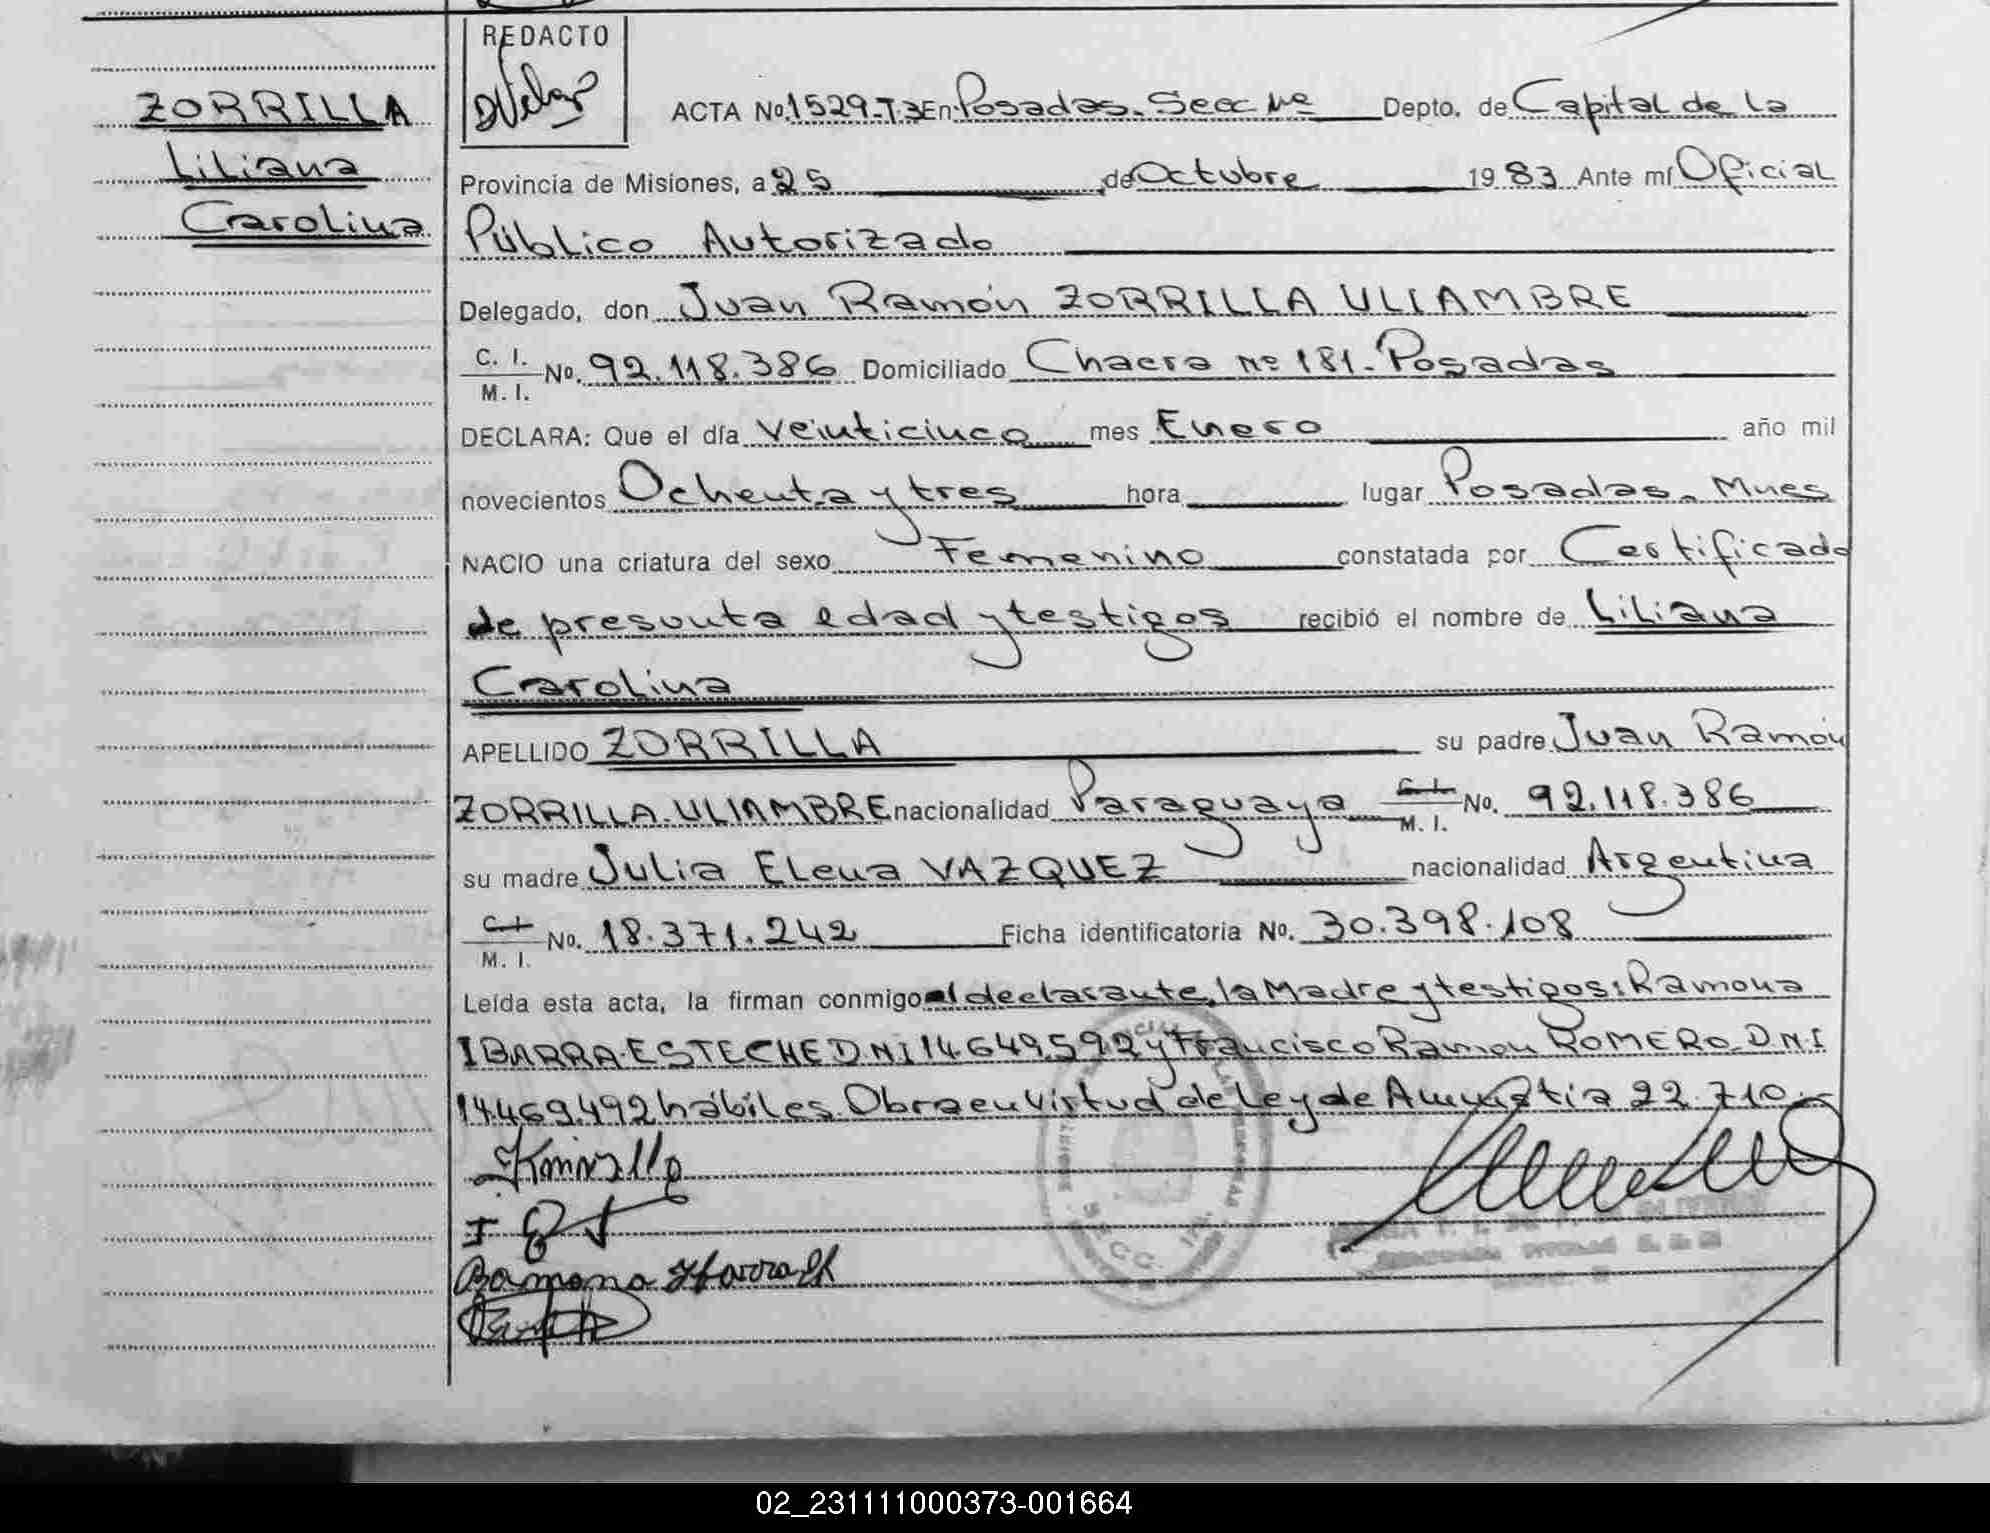 REDACTO
ZORRILLA
Liliana
Carolina
ACTA No. 1529-T.3 En Posadas. Secc Depto. de Capital de la
Provincia de Misiones, a 25 de Octubre 1983 Ante mí Oficial
Público Autorizado
Delegado, don Juan Ramón ZORRILLA ULIAMBRE
C. I.
M. I. No. 92.118.386 Domiciliado Chacra Nº 181. Posadas
DECLARA: Que el día veinticinco mes Enero año mil
novecientos Ochenta y tres hora lugar Posadas. Mnes
NACIO una criatura del sexo Femenino constatada por Certificado
de presunta edad y testigos recibió el nombre de Liliana
Carolina
APELLIDO ZORRILLA su padre Juan Ramón
ZORRILLA. ULIAMBRE nacionalidad Paraguaya C. I. M. I. No. 92.118.386
su madre Julia Elena VAZQUEZ nacionalidad Argentina
C. I.
M. I. No. 18.371.242 Ficha identificatoria No. 30.398.108
Leída esta acta, la firman conmigo el declarante, la Madre y testigos: Ramona
IBARRA. ESTECHE D N I 14649.592 y Francisco Ramon ROMERO. D.N.I
14.469.492 hábiles. Obra en virtud de Ley de Amnistia 22.710.-
Ramona Ibarra
SECC.
02_231111000373-001664